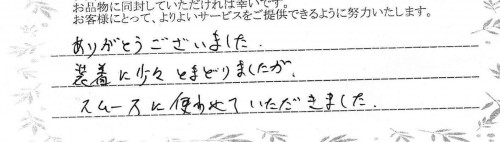 お品物に同封していただければ幸いです。
お客様にとって、よりよいサービスをご提供できるように努力いたします。
ありがとうございました.
装着に少々とまどりましたが、
スムースに使わせていただきました.